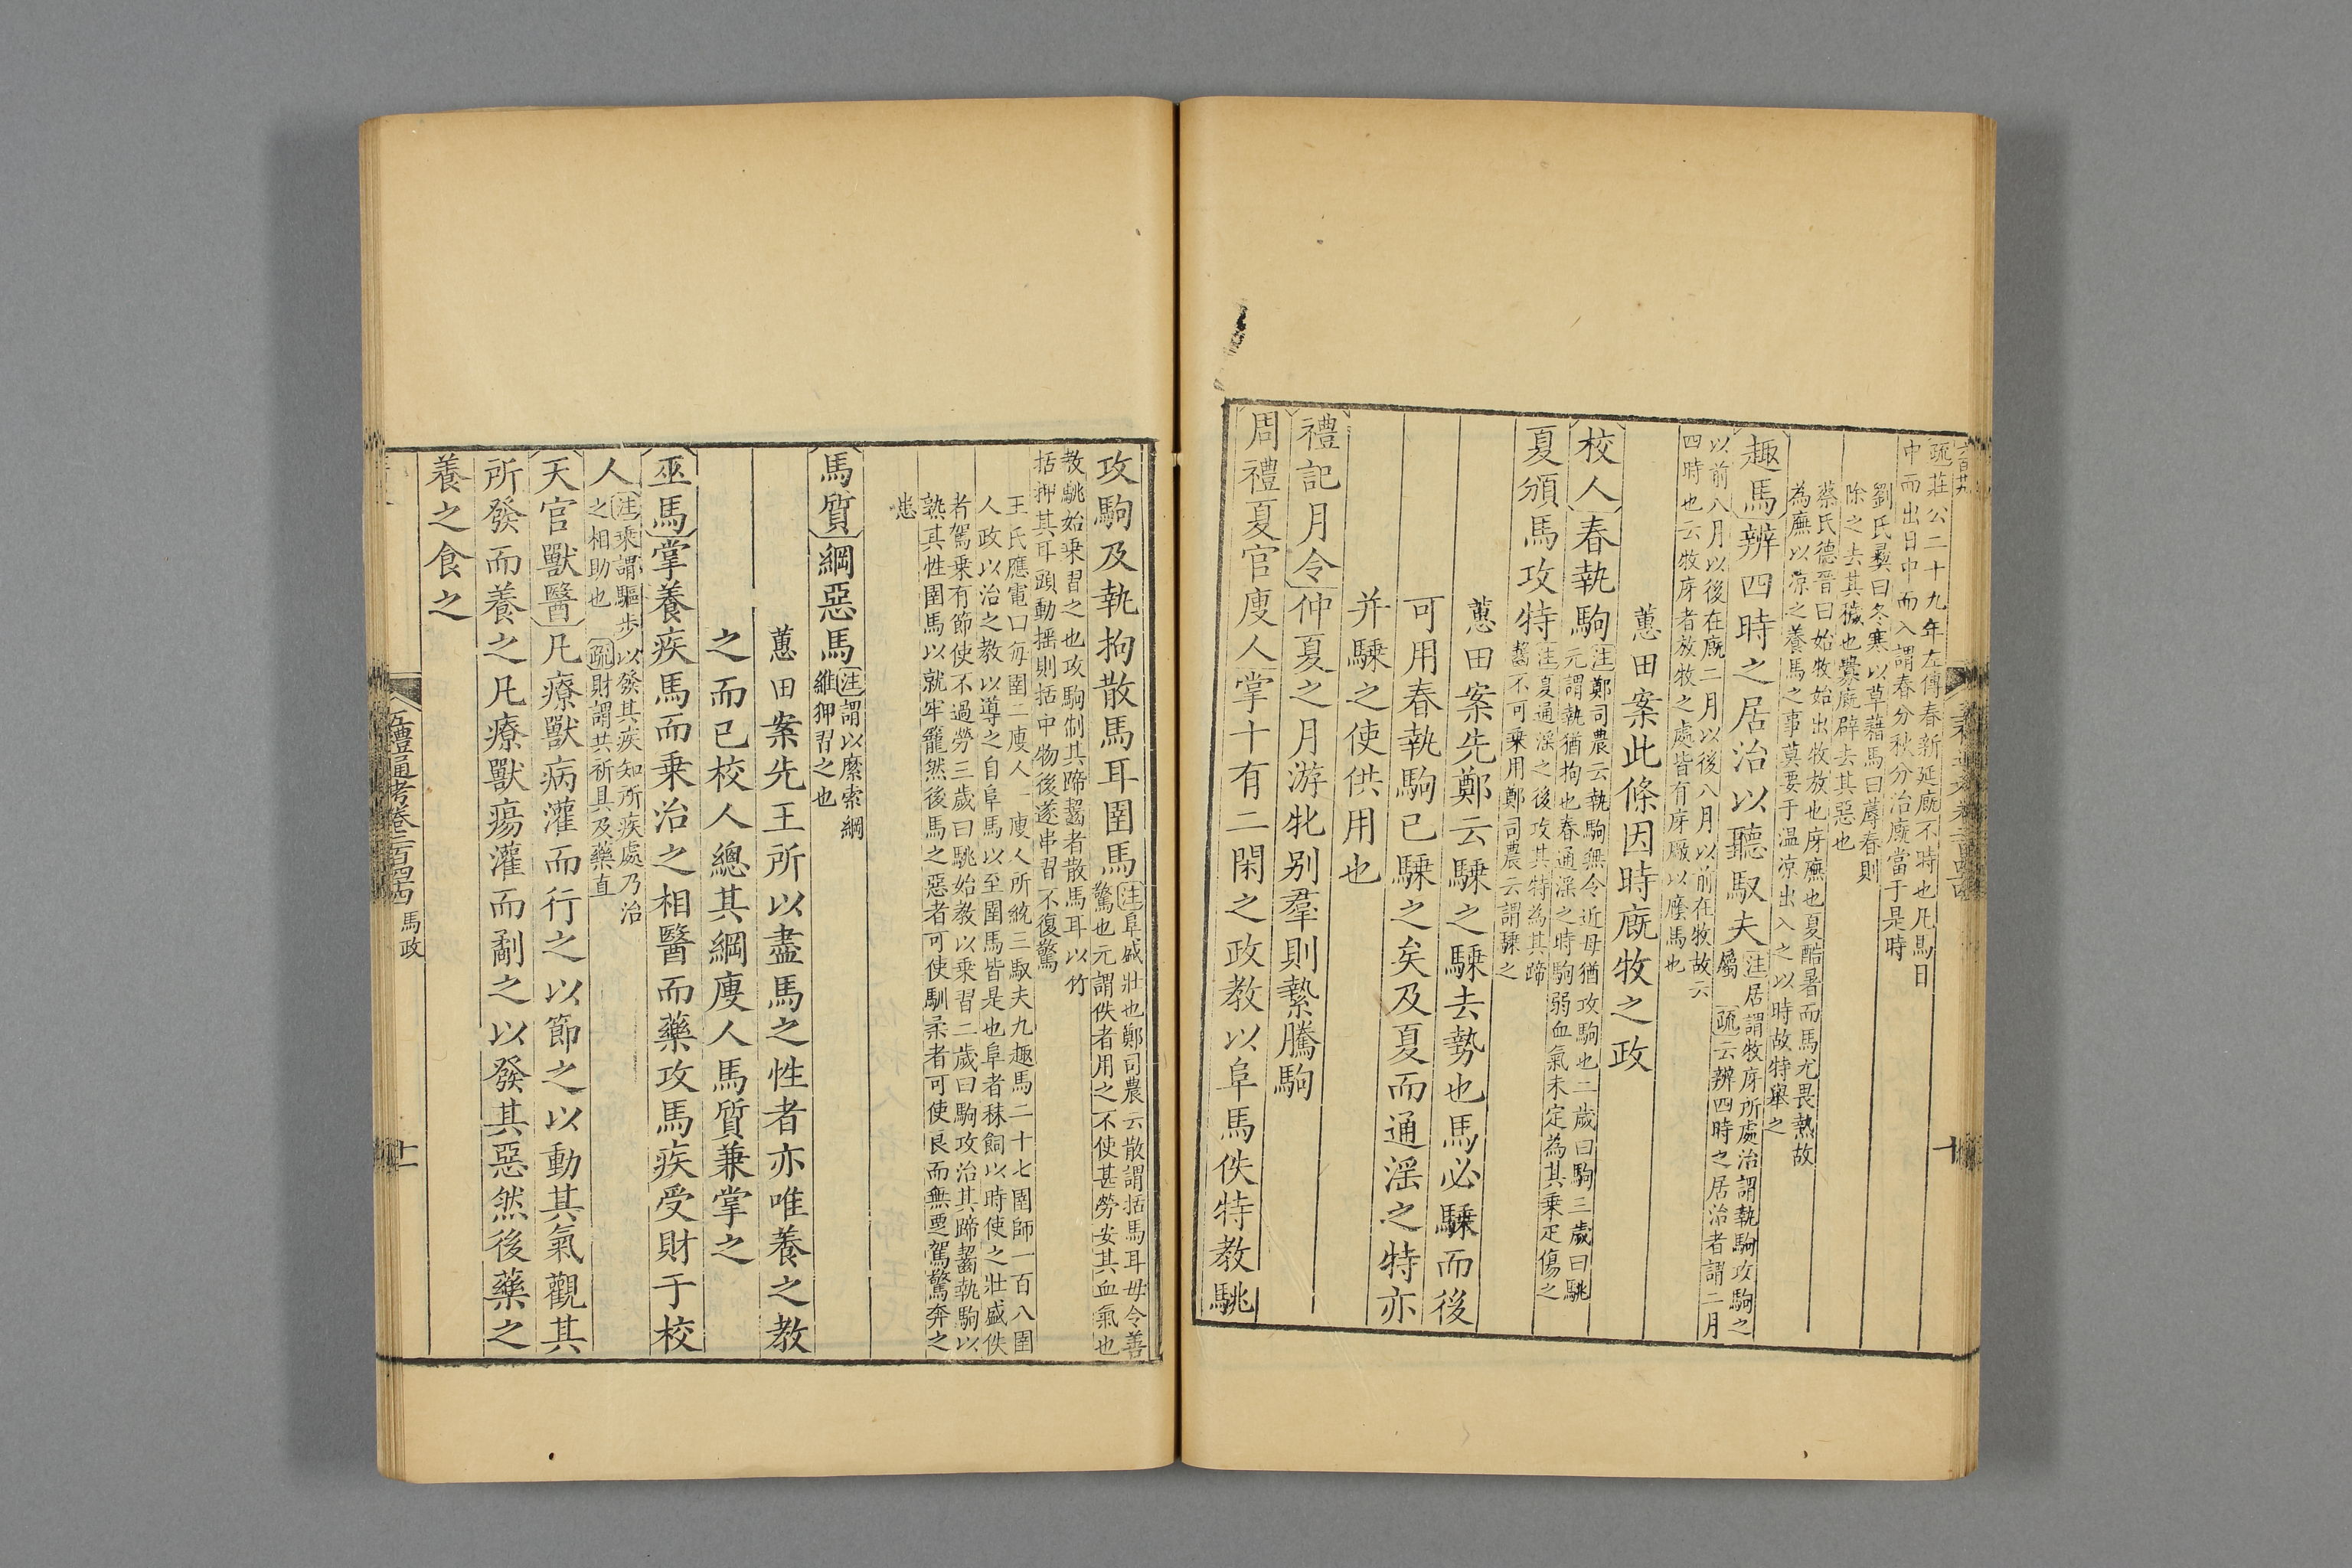 疏莊公二十九年左傳春新延廐不時也凡馬日
中而出日中而入謂春分秋分治廐當于是時
劉氏彝曰冬寒以草藉馬曰蓐春則
除之去其穢也釁廐辟去其惡也
蔡氏德晉曰始牧始出牧放也庌廡也夏酷暑而馬尤畏熱故
為廡以涼之養馬之事莫要于温涼出入之以時故特舉之
趣馬辨四時之居治以聽馭夫
注居謂牧庌所處治謂執駒攻駒之
屬 疏云辨四時之居治者謂二月
以前八月以後在廐二月以後八月以前在牧故云
四時也云牧庌者放牧之處皆有庌廠以廕馬也
蕙田案此條因時廐牧之政
校人春執駒
注鄭司農云執駒無令近母猶攻駒也二歲曰駒三歲曰駣
元謂執猶拘也春通淫之時駒弱血氣未定為其乗疋傷之
夏頒馬攻特
注夏通淫之後攻其特為其蹄
齧不可乗用鄭司農云謂騬之
蕙田案先鄭云騬之騬去勢也馬必騬而後
可用春執駒已騬之矣及夏而通淫之特亦
并騬之使供用也
禮記月令仲夏之月游牝别羣則縶騰駒
周禮夏官廋人掌十有二閑之政教以阜馬佚特教駣
攻駒及執拘散馬耳圉馬
注阜盛壯也鄭司農云散謂括馬耳毋令善
驚也元謂佚者用之不使甚勞安其血氣也
教駣始乗習之也攻駒制其蹄齧者散馬耳以竹
括押其耳頭動揺則括中物後遂串習不復驚
王氏應電曰每圉二廋人一廋人所統三馭夫九趣馬二十七圉師一百八圉
人政以治之教以導之自阜馬以至圉馬皆是也阜者秣飼以時使之壯盛佚
者駕乗有節使不過勞三歲曰駣始教以乗習二歲曰駒攻治其蹄齧執駒以
執其性圉馬以就牢籠然後馬之惡者可使馴柔者可使良而無覂駕驚奔之
患
馬質綱惡馬
注謂以縻索綱
維狎習之也
蕙田案先王所以盡馬之性者亦唯養之教
之而已校人總其綱廋人馬質兼掌之
巫馬掌養疾馬而乗治之相醫而藥攻馬疾受財于校
人
注乗謂驅步以發其疾知所疾處乃治
之相助也 疏財謂共祈具及藥直
天官獸醫凡療獸病灌而行之以節之以動其氣觀其
所發而養之凡療獸瘍灌而劀之以發其惡然後藥之
養之食之
五禮通考卷二百四十四 馬政
十一